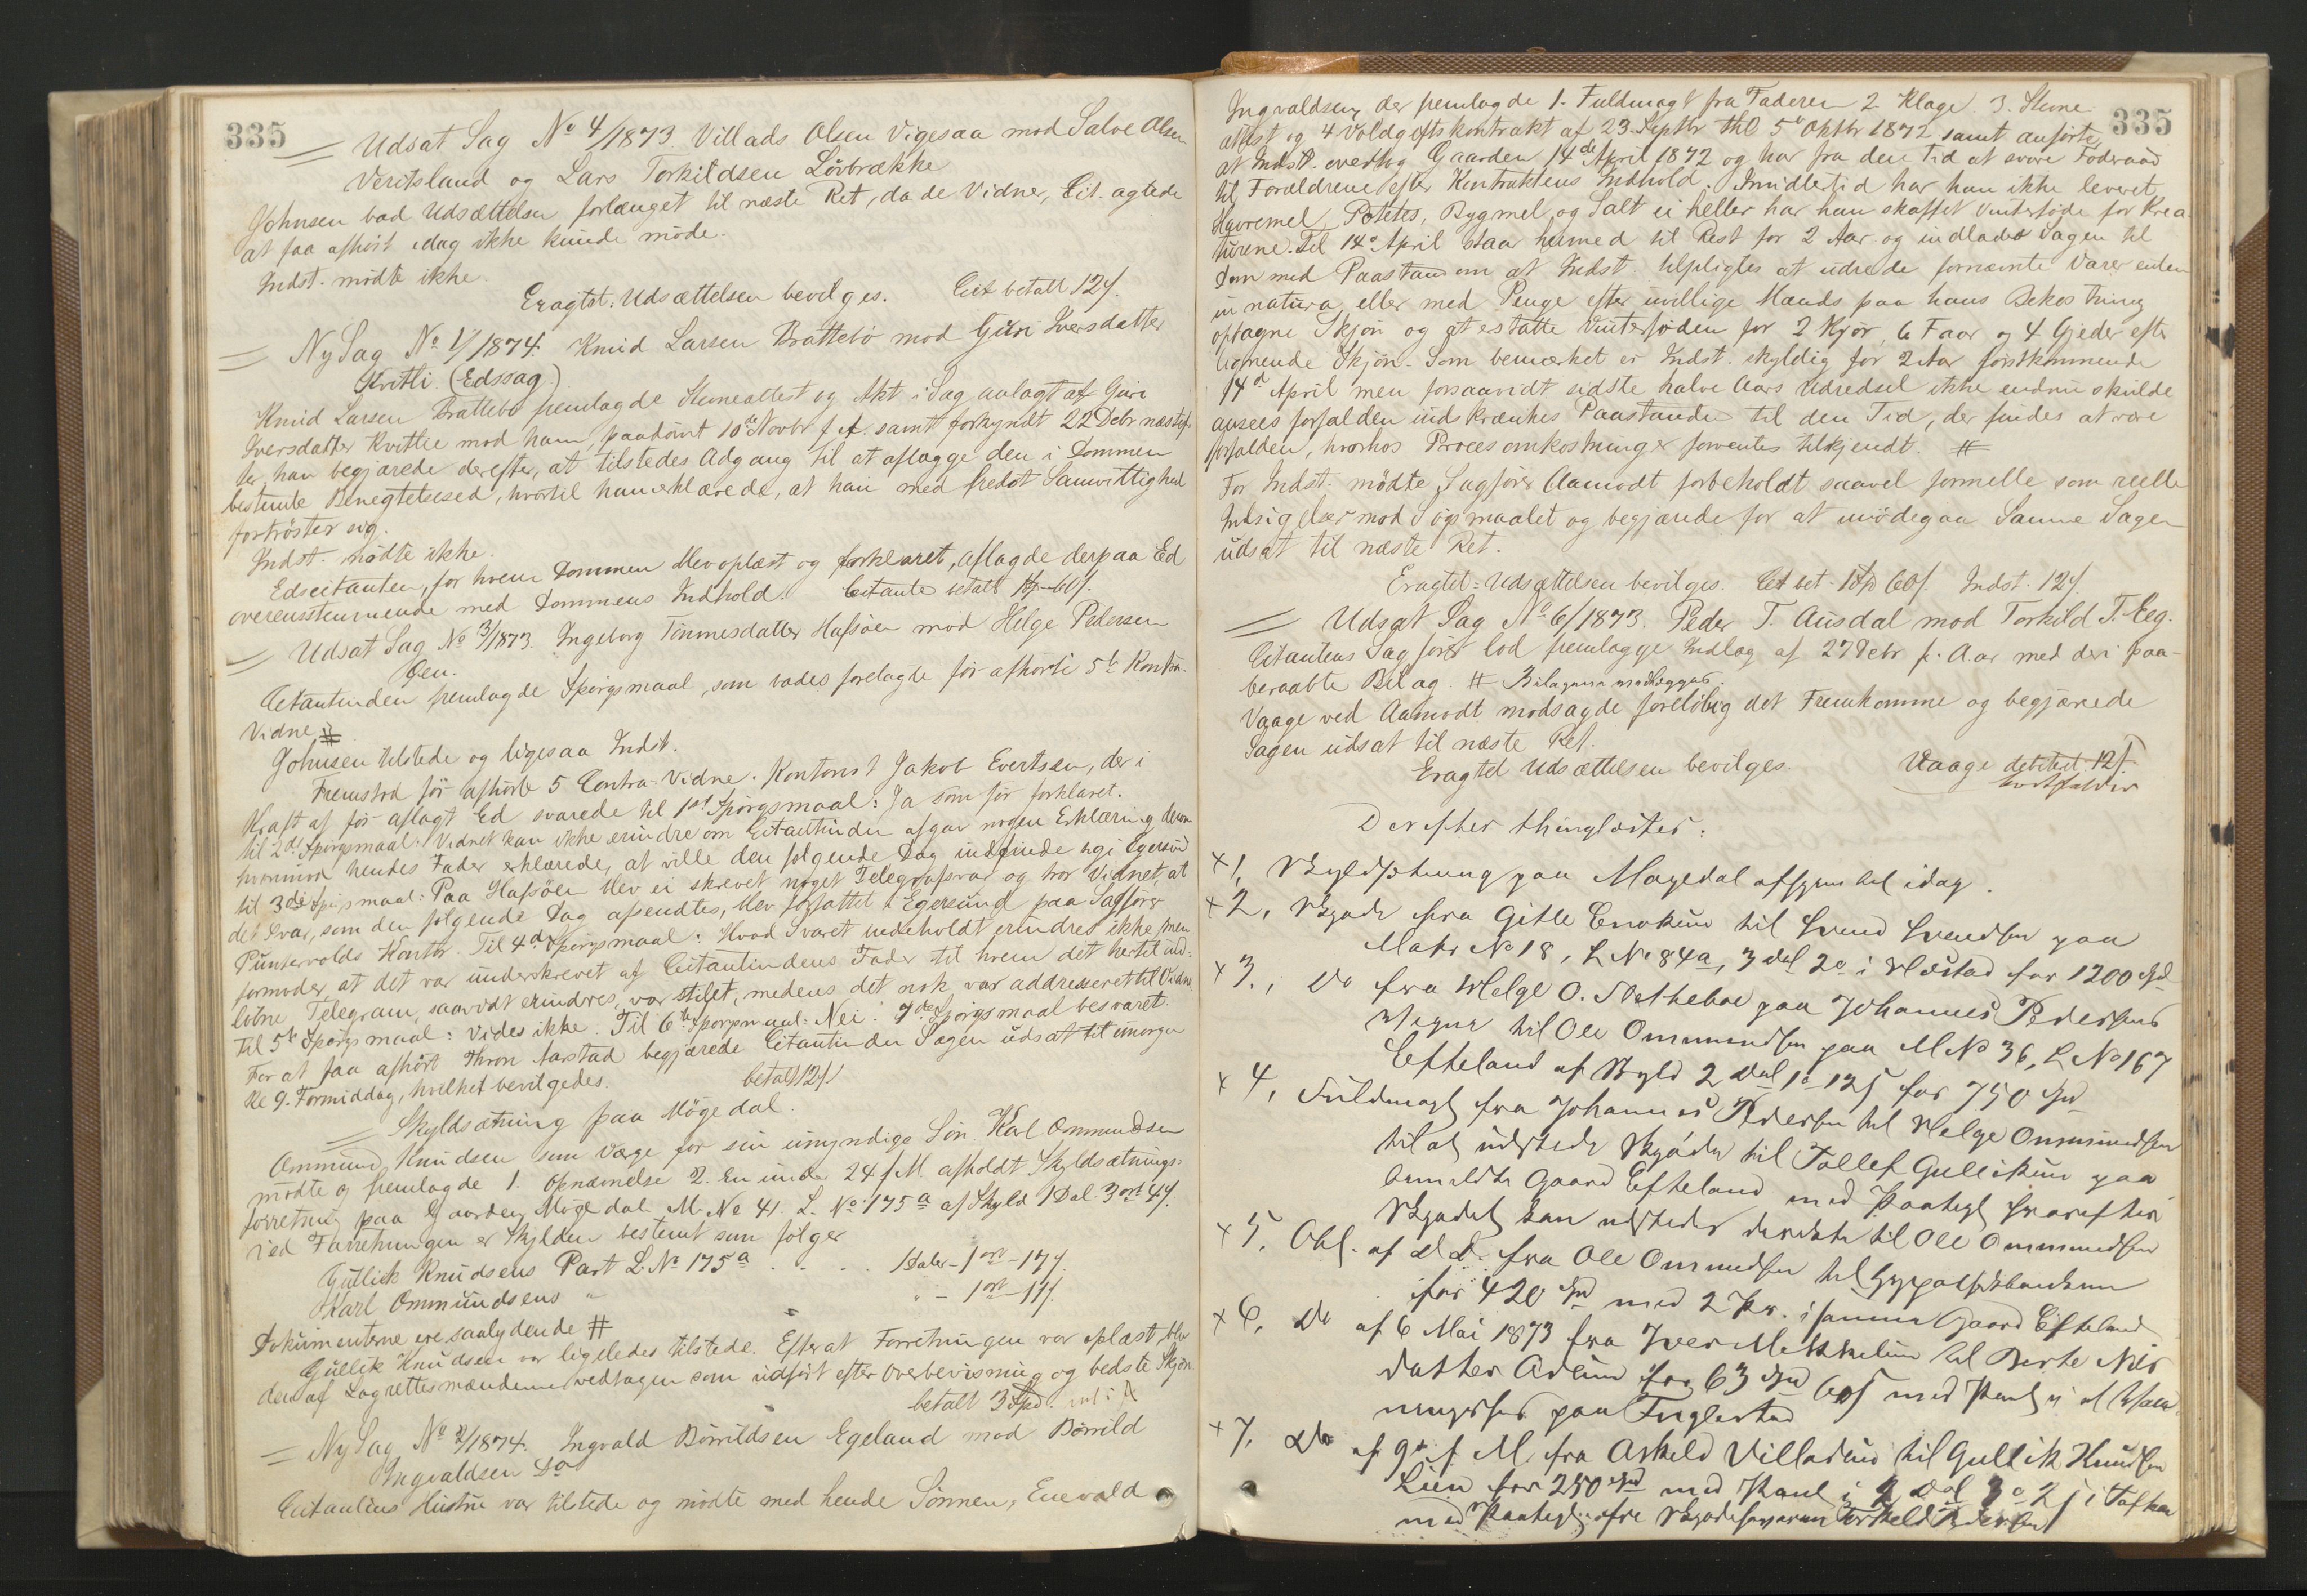 335
Udsat Sag No 4/1873. Villads Olsen Vigesaa mod Salve Olsen
Veritsland og Lars Torkildsen Løvbrække
Johnsen bad Udsættelsen forlænget til næste Ret, da de Vidner, Cit. agtede
at faa afhørt idag ikke kunde møde.
Indst. mødte ikke.
Eragtet: Udsættelsen bevilges. Cit betalt 12 ʃ.
Ny Sag No 1/1874. Knud Larsen Brattebø mod Guri Iversdatter
Kvitli. (Edssag)
Knud Larsen Brattebø fremlagde Stevneattest og Akt i Sag anlagt af Guri
Iversdatter Kvitlie mod ham, paadømt 10de Novbr f. A. samt forkyndt 22 Debr næstef-
ter, han begjærede derefter, at tilstedes Adgang til at aflægge den i Dommen
bestemte Benegtelsesed, hvortil han erklærede, at han med fredet Samvittighed
fortrøster sig.
Indst. mødte ikke.
Edscitanten, for hvem Dommen blev oplæst og forklaret, aflagde derpaa Ed
overensstemmende med Dommens Indhold. Citanten betalt 1 60 ʃ.
Udsat Sag No 3/1873. Ingeborg Tønnesdatter Hafsøen mod Helge Pedersen
Øen.
Citantinden fremlagde Spørgsmaal, som bades forelagte før afhørte 5te Kontra-
Vidne #
Johnsen tilstede og ligesaa Indst.
Fremstod før afhørte 5 Contra-Vidne. Kontorist Jakob Evertsen, der i
Kraft af før aflagt Ed svarede til 1ste Spørgsmaal: Ja som før forklaret.
til 2det Spørgsmaal: Vidnet kan ikke erindre om Citantinden afgav nogen Erklæring derom
hvorimod hendes Fader erklærede, at ville den følgende Dag indfinde sig i Egersund
til 3die Spørgsmaal: Paa Hafsøen blev ei skrevet noget Telegrafsvar og tror Vidnet, at
det Svar, som den følgende Dag afsendtes, blev forfattet i Egersund paa Sagfører
Puntervolds Kontor. Til 4de Spørgsmaal: Hvad Svaret indeholdt erindres ikke, men
formoder, at det var underskrevet af Citantindens Fader til hvem det hertil ind-
løbne Telegram, saavidt erindres, var stilet, medens det nok var addresseret til Vidnet
Til 5te Spørgsmaal: Vides ikke. Til 6te Spørgsmaal: Nei. 7de Spørgsmaal besvaret.
For at faa afhørt Thron Aarstad begjærede Citantinden Sagen udsat til imorgen
Kl 9. Formiddag, hvilket bevilgedes. betalt 12 ʃ
Skyldsætning paa Møgedal.
Ommund Knudsen som Værge for sin umyndige Søn Karl Ommundsen
mødte og fremlagde 1. Opnævnelse 2. En under 24 f. M. afholdt Skyldsætnings-
forretning paa Gaarden Møgedal M. No 41. L. No 175a af Skyld 1 Dal. 3 ort 4 ʃ.
ved Forretningen er Skylden bestemt som følger
Gullick Knudsens Part L. No 175a . . . . 1 Daler - 1 ort - 17 ʃ.
Karl Ommundsens " " - 1 ort - 11 ʃ
Dokumenterne ere saalydende #
Gullik Knudsen var ligeledes tilstede. Efterat Forretningen var oplæst, blev
den af Lagrettesmændene vedtagen som udført efter Overbevisning og bedste Skjøn.
betalt 3 Spd.
Ny Sag No 2/1874. Ingvald Børrildsen Egeland mod Børrild
Ingvaldsen Do
Citantens Hustru var tilstede og mødte med hende Sønnen, Enevald
335
Ingvaldsen, der fremlagde 1. Fuldmagt fra Faderen 2 Klage. 3. Stevne-
attest og 4 Voldgiftskontrakt af 23. Septbr thl 5te Oktbr 1872 samt anførte,
at Indst. overtog Gaarden 14de April 1872 og har fra den Tid at svare Føderaad
til Forældrene efter Kontraktens Indhold. Imidlertid har han ikke leveret
Havremel, Potetes, Bygmel og Salt ei heller har han skaffet Vinterføde for Krea-
turene. Til 14de April staar hermed til Rest for 2 Aar og indlader Sagen til
Dom med Paastand om at Indst. tilpligtes at udrede fornævnte Varer enten
in natura eller med Penge efter uvillige Mænds paa hans Bekostning
optagne Skjøn og at erstatte Vinterføden for 2 Kjør, 6 Faar og 4 Gjeder efter
lignende Skjøn. Som bemærket er Indst. skyldig for 2 Aar førstkommende
14de April men forsaavidt sidste halve Aars Udredsel ikke endnu skulde
ansees forfalden indskrænkes Paastanden til den Tid, der findes at være
forfalden, hvorhos Procesomkostninger forventes tilkjendt. #
For Indst. mødte Sagfører Aamodt forbeholdt saavel formelle som reelle
Indsigelser mod Søgsmaalet og begjærede for at imødegaa Samme Sagen
udsat til næste Ret.
Eragtet: Udsættelsen bevilges. Cit bet. 1 60 ʃ. Indst. 12 ʃ
Udsat Sag No 6/1873. Peder T. Ausdal mod Torkild T. Eeg.
Citantens Sagfører lod fremlægge Indlæg af 27 Debr f. Aar med deri paa-
beraabte Bilag. # Bilagene vedlægges.
Vaage ved Aamodt modsagde foreløbig det Fremkomne og begjærede
Sagen udsat til næste Ret.
Eragtet Udsættelsen bevilges. Vaage debiteret 12 ʃ
bortfalder
Derefter thinglæstes:
x 1, Skyldsætning paa Møgedal afhjemlet idag.
x 2, Skjøde fra Gitle Enoksen til Svend Svendsen paa
Matr No 18, L No 84a, 3 Dal 2 o i Mæstad for 1200 Spd
x 3., Do fra Helge O. Slettebøe paa Johannes Pedersens
Vegne til Ole Ommundsen paa M No 36, L No 167
Efteland af Skyld 2 Dal 1 o 12 ʃ for 750 Spd
x 4, Fuldmagt fra Johannes Pedersen til Helge Ommundsen
til at udstede Skjøde til Tollef Gulliksen paa
bemeldte Gaard Efteland med Paategn hvorefter
Skjødet kan udstedes derekte til Ole Ommundsen
x 5, Obl. af D.D. fra Ole Ommundsen til Hypothekbanken
for 420 Spd med 2 Pr. i samme Gaard Efteland
x 6, Do af 6 Mai 1873 fra Iver Mikkelsen til Berte Nils
datter Årsund for 63 Spd 60 ʃ med Pant i
paa Fuglestad
x 7, Do af 9de f. M. fra Askeld Villadsen til Gullik Knudsen
Lien for 250 Spd med Pant i 2 Dal 3 o 2 ʃ i
med Paategn fra Torkeld Pedersen